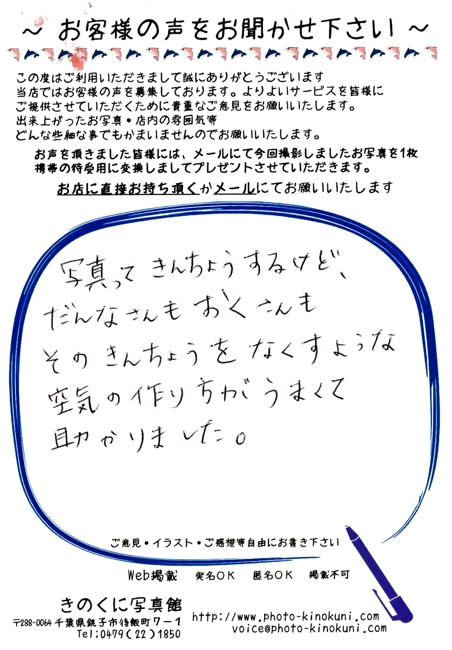 ～ お客様の声をお聞かせ下さい ～
この度はご利用いただきまして誠にありがとうございます
当店ではお客様の声を募集しております。よりよいサービスを皆様に
ご提供させていただくために貴重なご意見をお願いいたします。
出来上がったお写真・店内の雰囲気等
どんな些細な事でもかまいませんのでお願いいたします。
お声を頂きました皆様には、メールにて今回撮影しましたお写真を1枚
携帯の待受用に変換しましてプレゼントさせていただきます。
お店に直接お持ち頂くかメールにてお願いいたします
写真って きんちょうするけど、
だんなさんも おくさんも
そのきんちょうを なくすような
空気の作り方が うまくて
助かりました。
ご意見・イラスト・ご感想等自由にお書き下さい
Web掲載 実名OK 匿名OK 掲載不可
きのくに写真館
〒288-0064 千葉県銚子市後飯町7－1
Tel:0479(22)1850
http://www.photo-kinokuni.com/
voice@photo-kinokuni.com